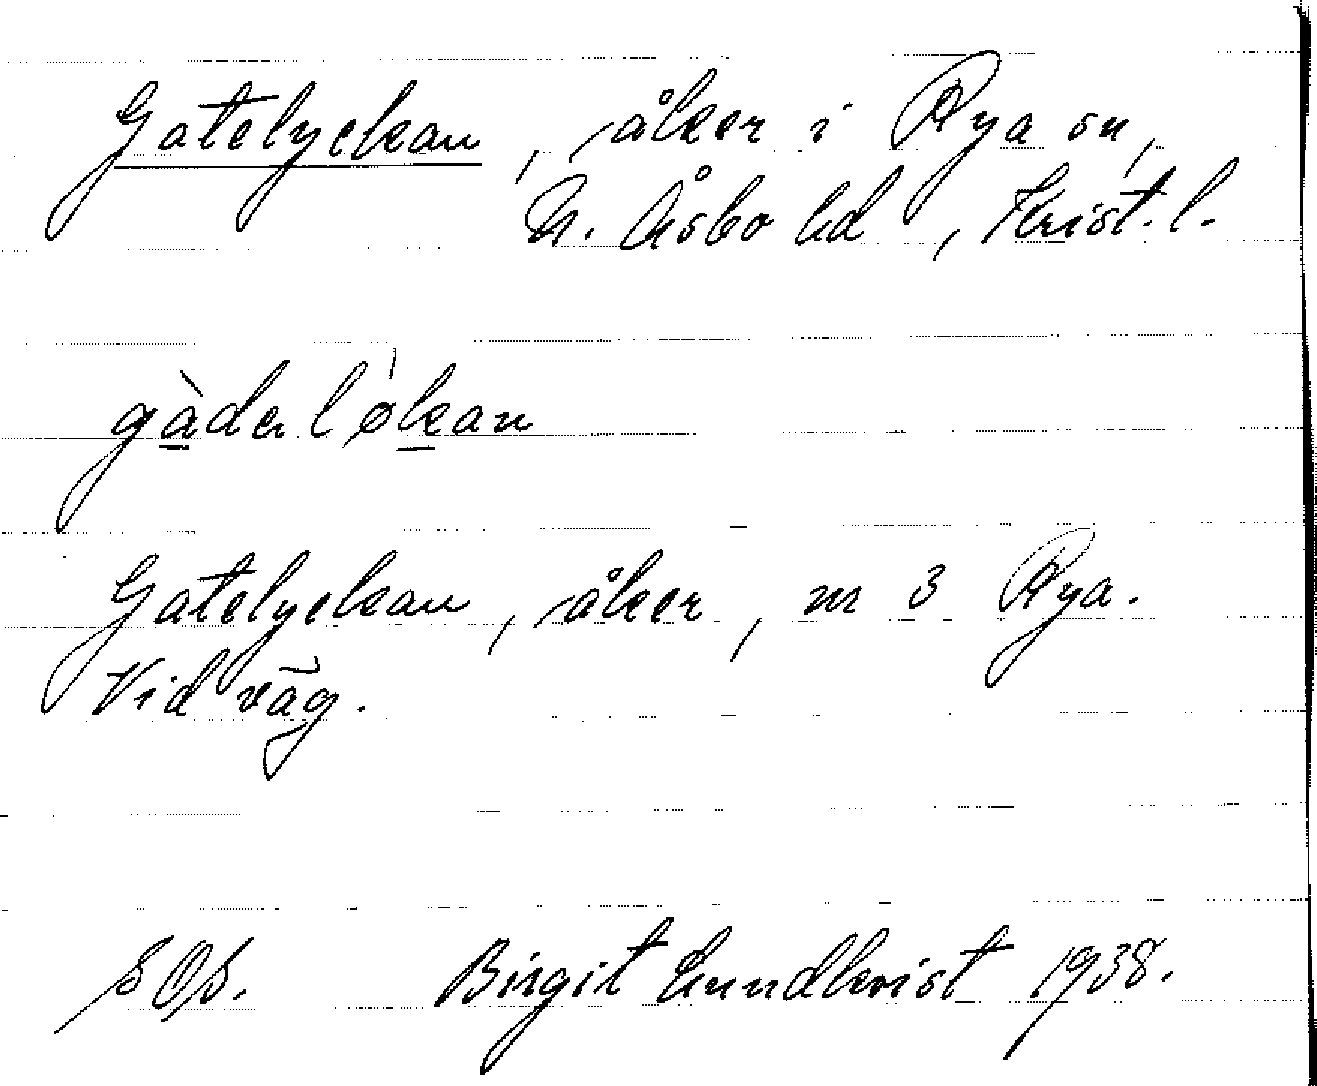 Gatelyckan, åker i Rya sn,
N. Åsbo hd, Krist. l.
gàdəløkan
Gatelyckan, åker, nr 3 Rya.
Vid väg.
SOS. Birgit Lundkvist 1938.